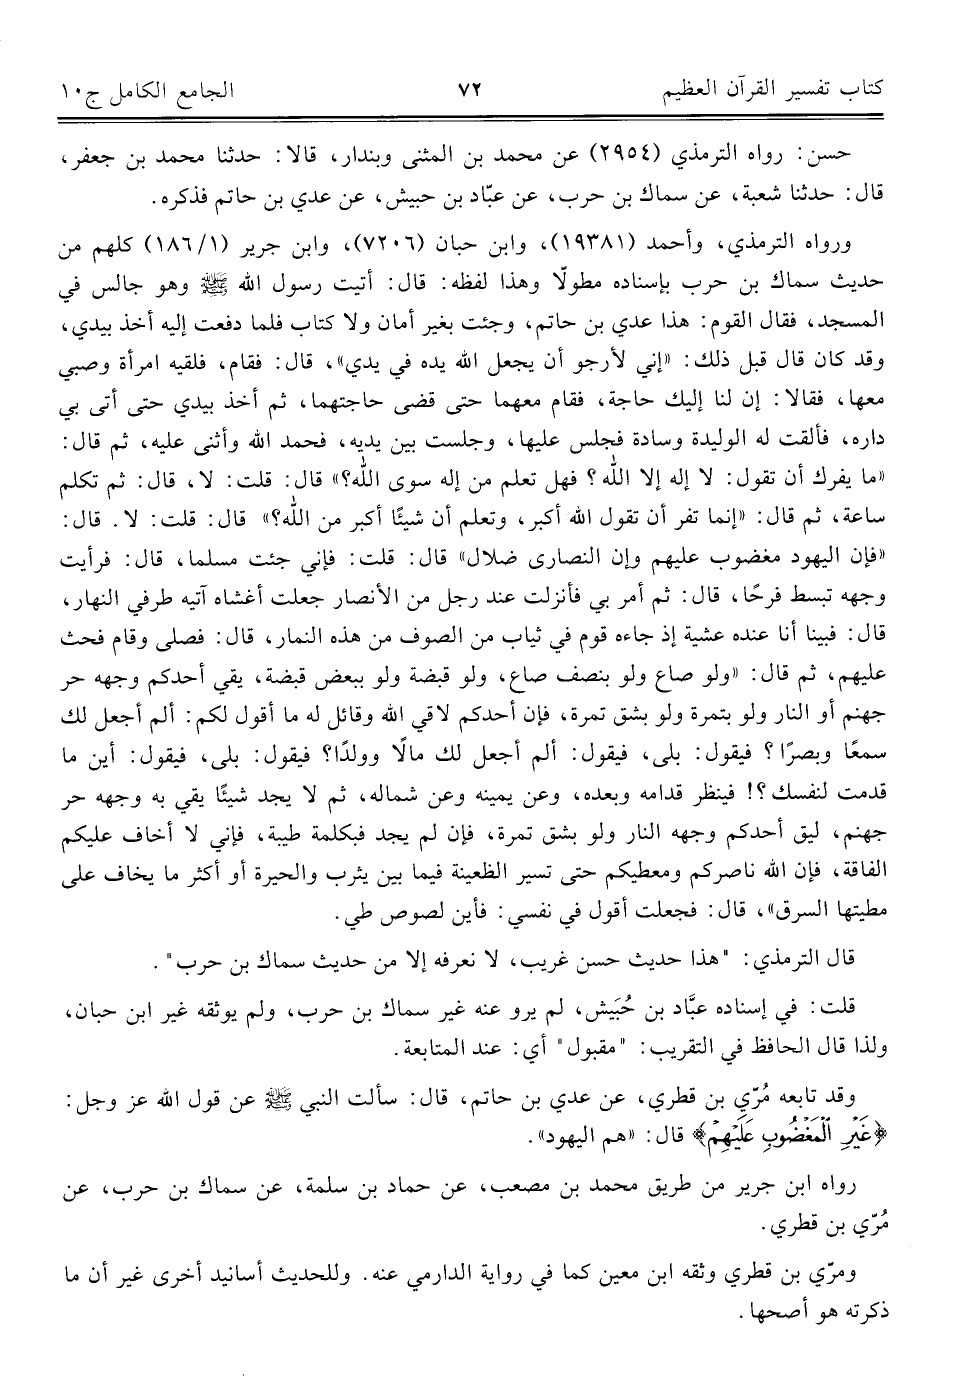 كتاب تفسير القرآن العظيم ٧٢ الجامع الكامل ج١٠
حسن: رواه الترمذي (٢٩٥٤) عن محمد بن المثنى وبندار، قالا: حدثنا محمد بن جعفر،
قال: حدثنا شعبة، عن سماك بن حرب، عن عبّاد بن حبيش، عن عدي بن حاتم فذكره.
ورواه الترمذي، وأحمد (١٩٣٨١)، وابن حبان (٧٢٠٦)، وابن جرير (١٨٦/١) كلهم من
حديث سماك بن حرب بإسناده مطولًا وهذا لفظه: قال: أتيت رسول الله ﷺ وهو جالس في
المسجد، فقال القوم: هذا عدي بن حاتم، وجئت بغير أمان ولا كتاب فلما دفعت إليه أخذ بيدي،
وقد كان قال قبل ذلك: «إني لأرجو أن يجعل الله يده في يدي»، قال: فقام، فلقيه امرأة وصبي
معها، فقالا: إن لنا إليك حاجة، فقام معهما حتى قضى حاجتهما، ثم أخذ بيدي حتى أتى بي
داره، فألقت له الوليدة وسادة فجلس عليها، وجلست بين يديه، فحمد الله وأثنى عليه، ثم قال:
«ما يفرك أن تقول: لا إله إلا الله؟ فهل تعلم من إله سوى الله؟» قال: قلت: لا، قال: ثم تكلم
ساعة، ثم قال: «إنما تفر أن تقول الله أكبر، وتعلم أن شيئًا أكبر من الله؟» قال: قلت: لا. قال:
«فإن اليهود مغضوب عليهم وإن النصارى ضلال» قال: قلت: فإني جئت مسلما، قال: فرأيت
وجهه تبسط فرحًا، قال: ثم أمر بي فأنزلت عند رجل من الأنصار جعلت أغشاه آتيه طرفي النهار،
قال: فبينا أنا عنده عشية إذ جاءه قوم في ثياب من الصوف من هذه النمار، قال: فصلى وقام فحث
عليهم، ثم قال: «ولو صاع ولو بنصف صاع، ولو قبضة ولو ببعض قبضة، يقي أحدكم وجهه حر
جهنم أو النار ولو بتمرة ولو بشق تمرة، فإن أحدكم لاقي الله وقائل له ما أقول لكم: ألم أجعل لك
سمعًا وبصرًا؟ فيقول: بلى، فيقول: ألم أجعل لك مالًا وولدًا؟ فيقول: بلى، فيقول: أين ما
قدمت لنفسك؟! فينظر قدامه وبعده، وعن يمينه وعن شماله، ثم لا يجد شيئًا يقي به وجهه حر
جهنم، ليق أحدكم وجهه النار ولو بشق تمرة، فإن لم يجد فبكلمة طيبة، فإني لا أخاف عليكم
الفاقة، فإن الله ناصركم ومعطيكم حتى تسير الظعينة فيما بين يثرب والحيرة أو أكثر ما يخاف على
مطيتها السرق»، قال: فجعلت أقول في نفسي: فأين لصوص طي.
قال الترمذي: "هذا حديث حسن غريب، لا نعرفه إلا من حديث سماك بن حرب".
قلت: في إسناده عبَّاد بن حُبَيش، لم يرو عنه غير سماك بن حرب، ولم يوثقه غير ابن حبان،
ولذا قال الحافظ في التقريب: "مقبول" أي: عند المتابعة.
وقد تابعه مُرّي بن قطري، عن عدي بن حاتم، قال: سألت النبي ﷺ عن قول الله عز وجل:
﴿غَيْرِ الْمَغْضُوبِ عَلَيْهِمْ﴾ قال: «هم اليهود».
رواه ابن جرير من طريق محمد بن مصعب، عن حماد بن سلمة، عن سماك بن حرب، عن
مُرّي بن قطري.
ومرّي بن قطري وثقه ابن معين كما في رواية الدارمي عنه. وللحديث أسانيد أخرى غير أن ما
ذكرته هو أصحها.